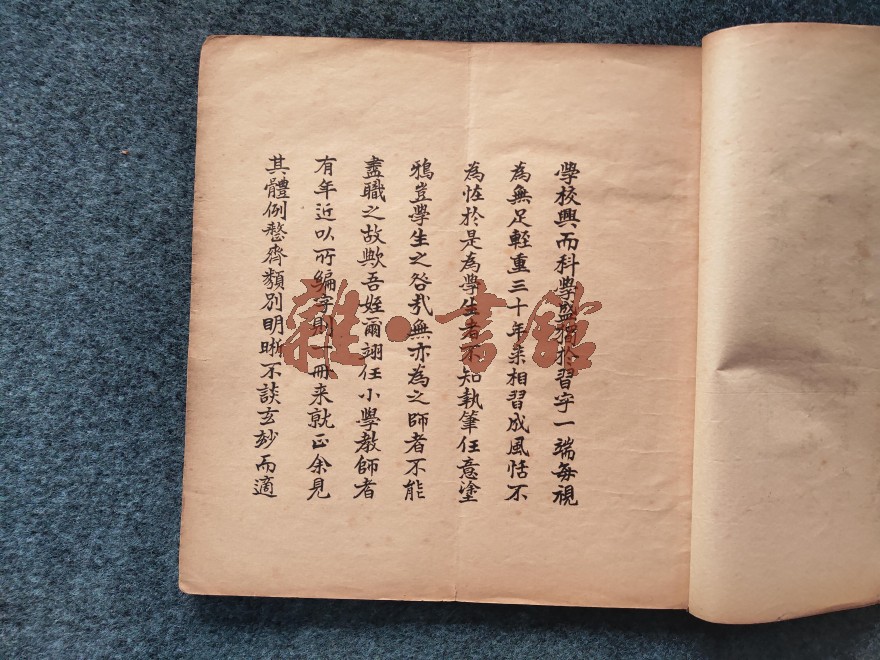 學校興而科學盛獨於習字一端每視
為無足輕重三十年來相習成風恬不
為怪於是為學生者不知執筆任意塗
鴉豈學生之咎哉無亦為之師者不能
盡職之故歟吾姪爾翊任小學教師者
有年近以所編字則一冊来就正余見
其體例整齊類別明晰不談玄妙而適
雜·書館